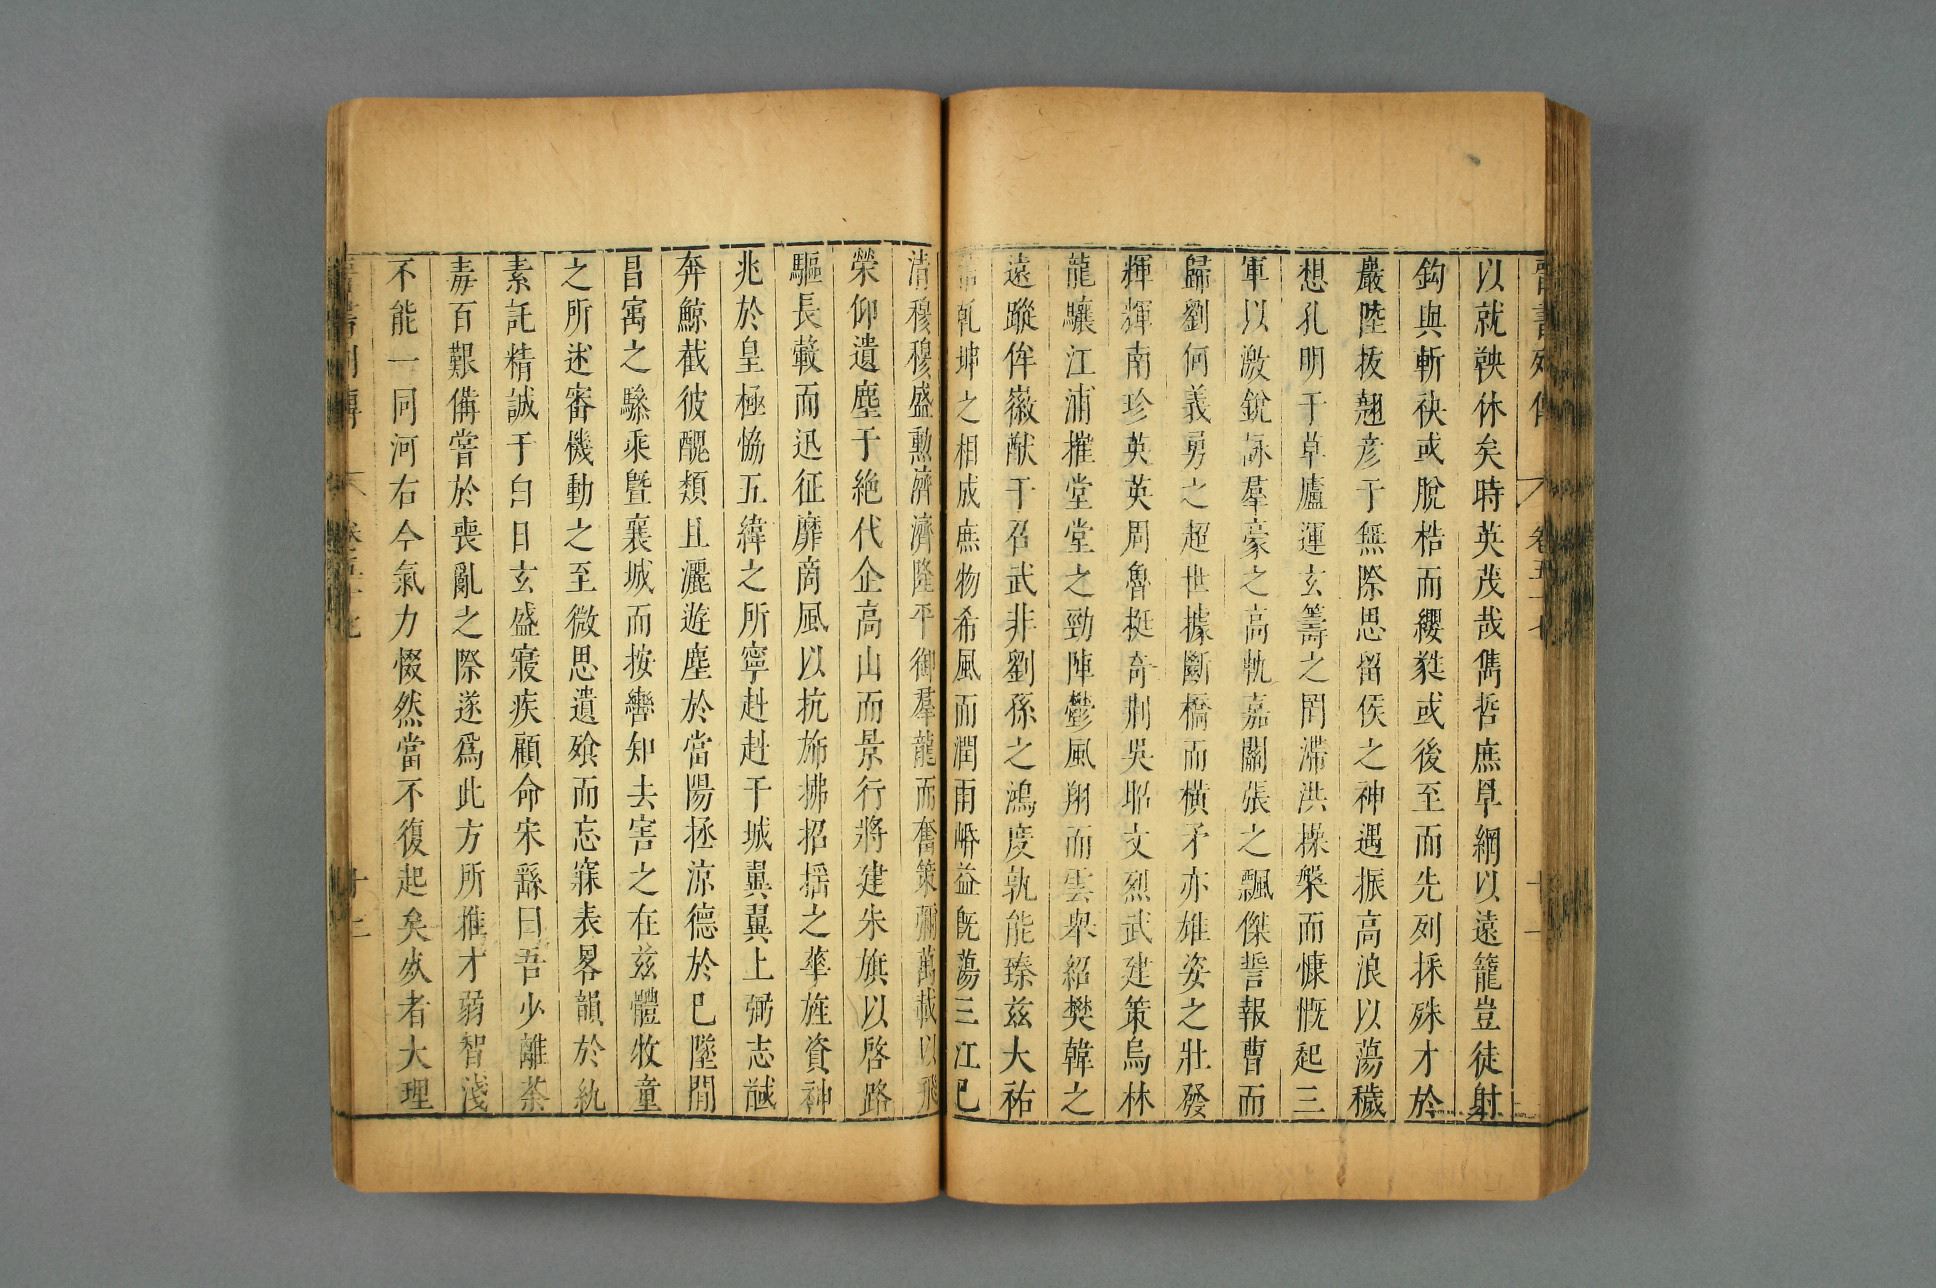 晉書列傳 卷五十七 十一
以就鞅休矣時英茂哉雋哲庶旱網以遠籠豈徒射
鈎與斬袂或脫梏而纓蕤或後至而先列採殊才於
巖陸拔翹彦于無際思留侯之神遇振高浪以蕩穢
想孔明于草廬運玄籌之罔滯洪操槃而慷慨起三
軍以激銳詠羣豪之高軌嘉關張之飄傑誓報曹而
歸劉何義勇之超世據斷橋而橫矛亦雄姿之壯發
輝輝南珍英英周魯挺奇荆吳昭文烈武建策烏林
龍驤江浦摧堂堂之勁陣鬱風翔而雲舉紹樊韓之
遠蹤侔徽猷于召武非劉孫之鴻度孰能臻兹大祐
乾坤之相成庶物希風而潤雨㟭益既蕩三江已
清穆穆盛勲濟濟隆平御羣龍而奮策彌萬載以飛
榮仰遺塵于絶代企高山而景行將建朱旗以啓路
驅長轂而迅征靡商風以抗斾拂招揺之華旌資神
兆於皇極恊五緯之所寧赳赳干城翼翼上弼志馘
奔鯨截彼醜類且灑遊塵於當陽拯涼德於已墜間
昌寓之驂乘曁襄城而按轡知去害之在兹體牧童
之所述審機動之至微思遺飱而忘寐表畧韻於紈
素託精誠于白日玄盛寢疾顧命宋繇曰吾少離荼
毒百艱備嘗於喪亂之際遂爲此方所推才弱智淺
不能一同河右今氣力惙然當不復起矣㱙者大理
晉書列傳 卷五十七 十二